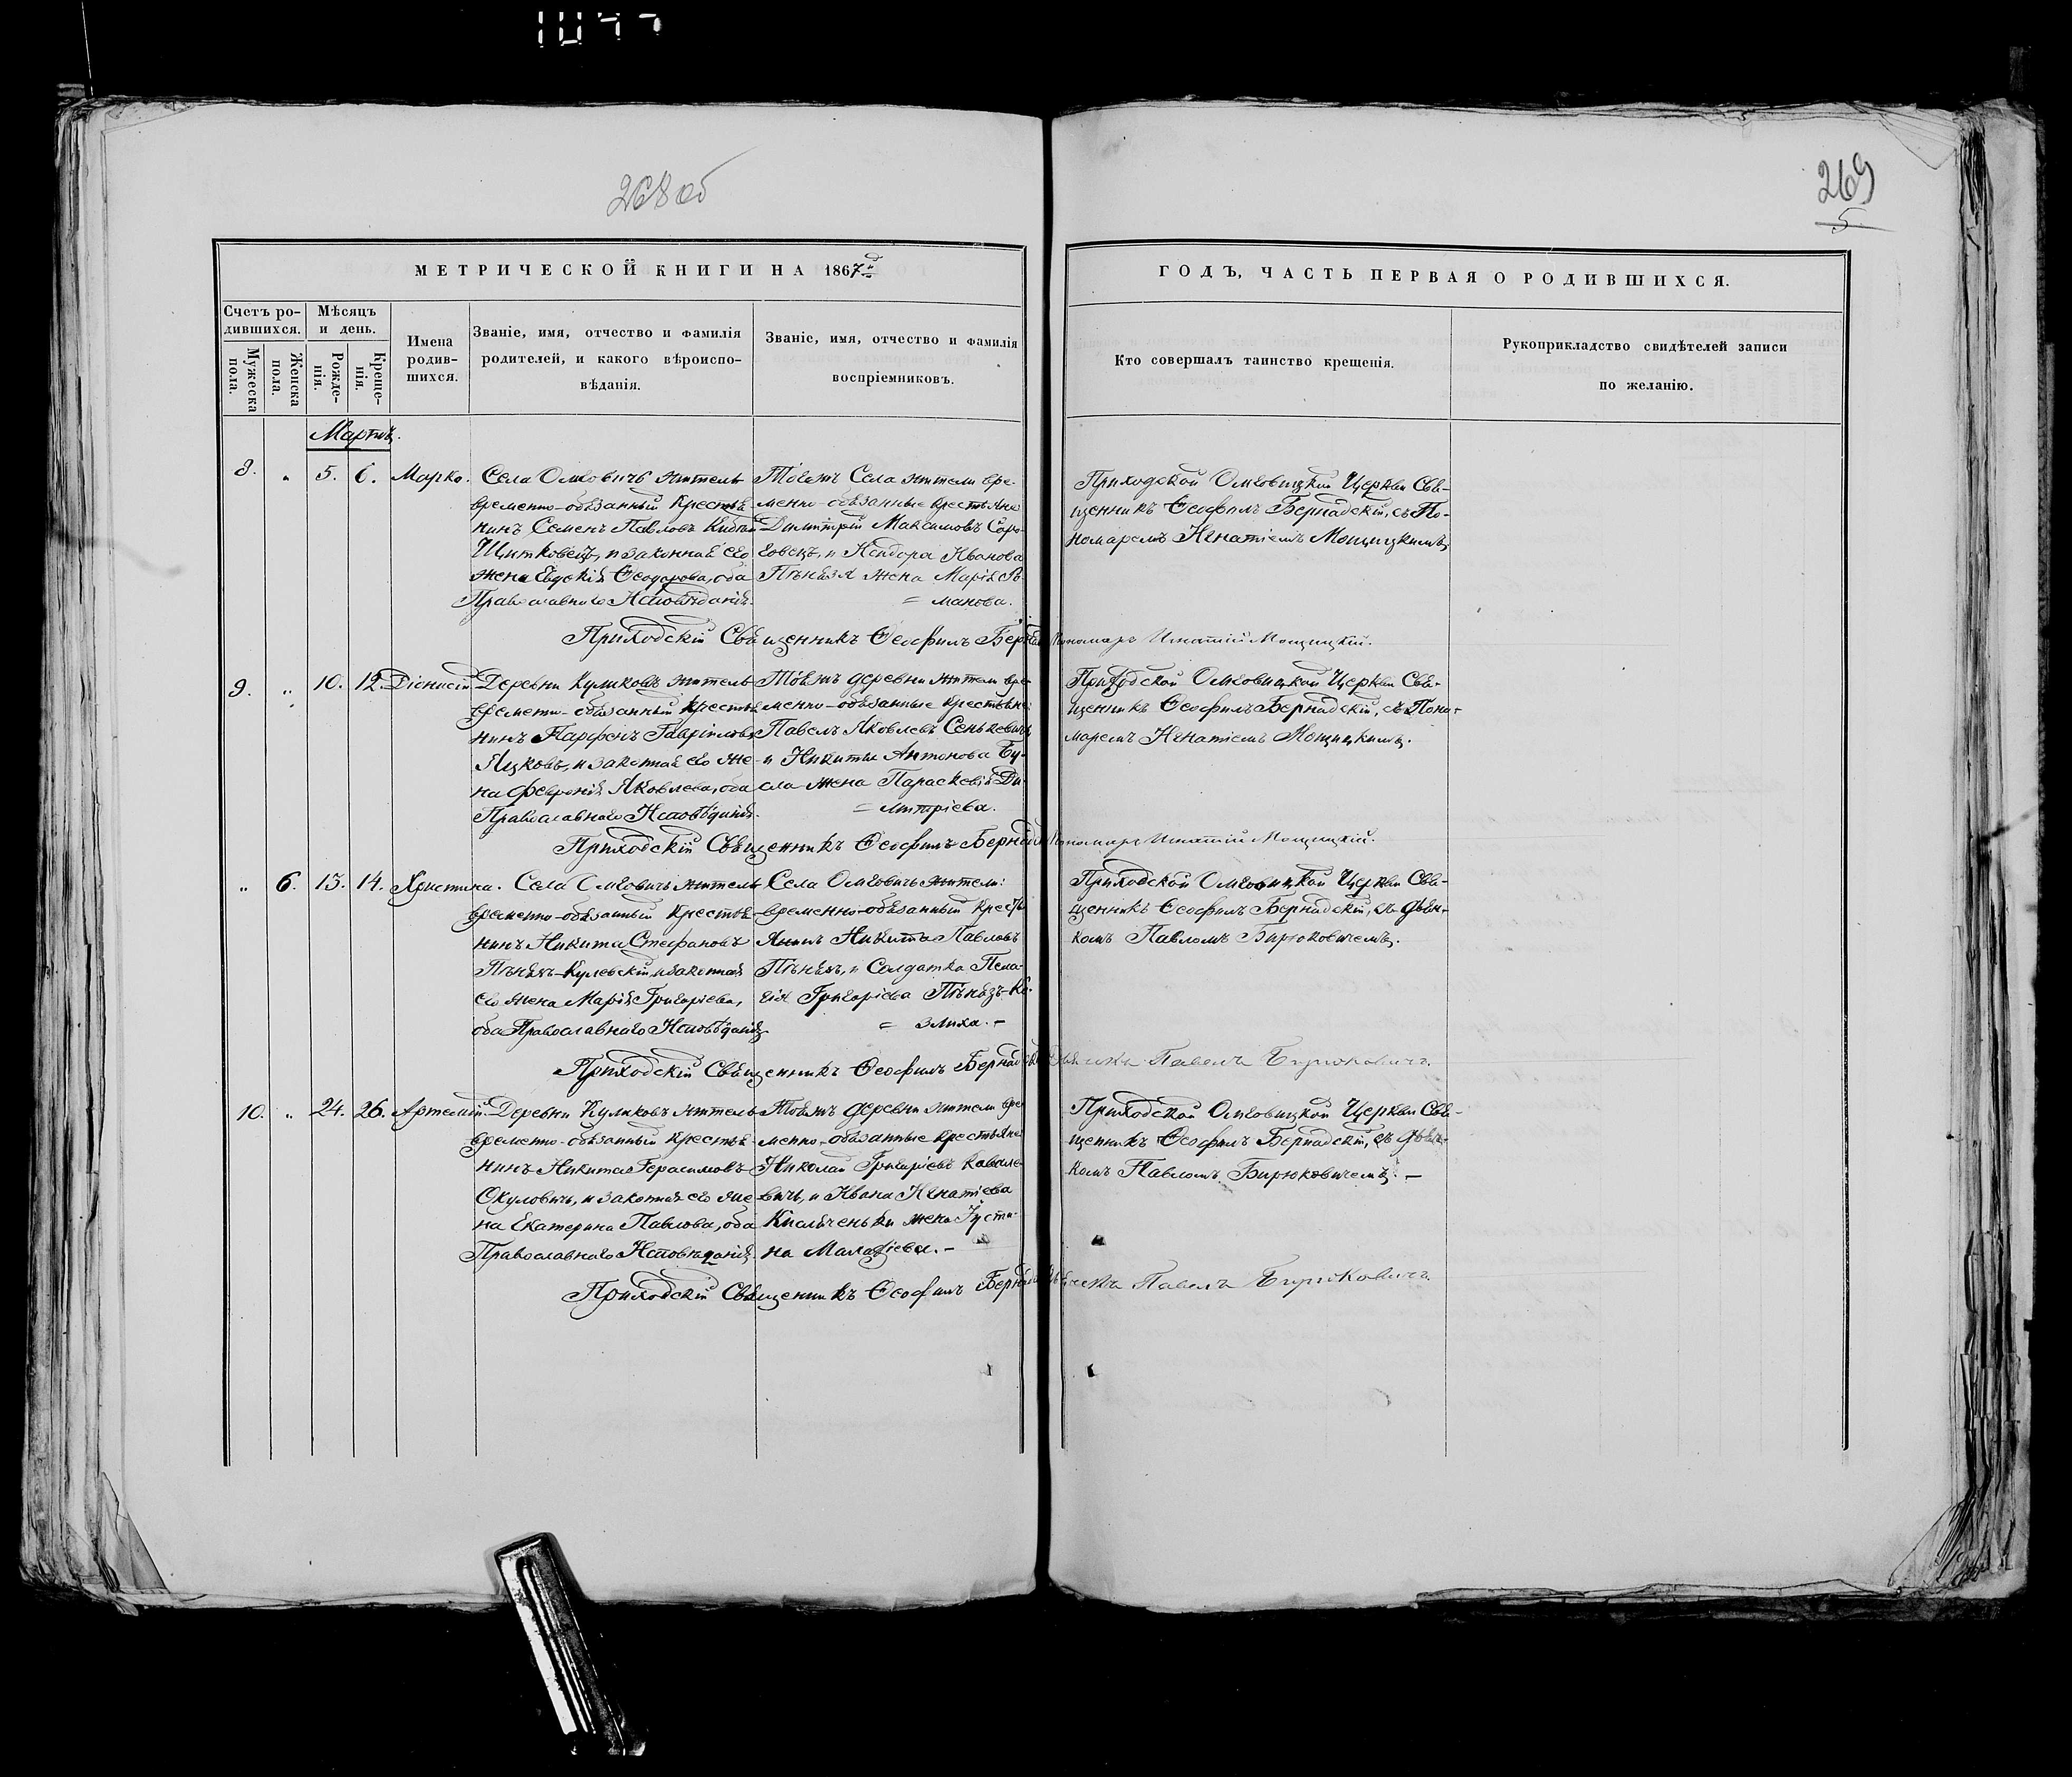 1077
268 об
269
5
МЕТРИЧЕСКОЙ КНИГИ НА 1867й
ГОДЪ, ЧАСТЬ ПЕРВАЯ О РОДИВШИХСЯ.
Счетъ ро-
дившихся.
Мужеска
пола.
Женска
пола.
Мѣсяцъ
и день.
Рожде-
нія.
Креще-
нія.
Имена
родив-
шихся.
Званіе, имя, отчество и фамилія
родителей, и какого вѣроиспо-
вѣданія.
Званіе, имя, отчество и фамилія
воспріемниковъ.
Кто совершалъ таинство крещенія.
Рукоприкладство свидѣтелей записи
по желанію.
Мартъ.
8. " 5. 6. Марко.
Села Омговичъ житель
временно-обязанный Крестья-
нинъ Семенъ Павловъ
Щитковецъ, и законная его
жена Евдокія Ѳеодорова, оба
Православнаго Исповѣданія.
Тогожъ Села жители вре-
менно-обязанные крестьяне
Димитрій Максимовъ Соро-
говецъ, и Иванова
Пѣнязя жена Марія Ро-
= манова.
Приходской Омговицкой Церкви Свя-
щенникъ Ѳеофилъ Бернадскій, съ По-
номаремъ Игнатіемъ Мощицкимъ.
Приходскій Священникъ Ѳеофилъ
Пономарь Игнатій Мощицкій.
9. " 10. 12. Діонисій
Деревни Куликовъ житель
временно-обязанный Крестья-
нинъ Парфенъ Гавріиловъ
Яцковъ, и законная его же-
на Февронія Яковлева, оба
Православнаго Исповѣданія.
Тойжъ деревни жители вре-
менно-обязанные крестьяне
Павелъ Яковлевъ Сенькевичъ
и Никиты Антонова Бу-
сла жена Параскевія Ди-
= митріева.
Приходской Омговицкой Церкви Свя-
щенникъ Ѳеофилъ Бернадскій, съ Поно-
маремъ Игнатіемъ Мощицкимъ.
Приходскій Священникъ Ѳеофилъ
Пономарь Игнатій Мощицкій.
" 6. 13. 14. Христина.
Села Омговичъ житель
временно-обязанный Крестья-
нинъ Никита Стефановъ
Пѣнязь-Кулевскій, и законная
его жена Марія Григоріева,
оба Православнаго Исповѣданія
Села Омговичъ жители:
временно-обязанный Кресть-
янинъ Никита Павловъ
Пѣнязь, и Солдатка Пела-
гія Григоріева Пѣнязь-Ко-
= злиха. -
Приходской Омговицкой Церкви Свя-
щенникъ Ѳеофилъ Бернадскій, съ Дьяч-
комъ Павломъ Бирюковичемъ.
Приходскій Священникъ Ѳеофилъ
Павелъ Бирюковичъ.
10. " 24. 26. Артемій.
Деревни Куликовъ житель
временно-обязанный Крестья-
нинъ Никита Герасимовъ
Окуловичъ, и законная его же-
на Екатерина Павлова, оба
Православнаго Исповѣданія.
Тойжъ деревни жители вре-
менно-обязанные крестьяне
Николай Григоріевъ Ковале-
вичъ, и Ивана Игнатіева
жена Іусти-
на Малафіева. -
Приходской Омговицкой Церкви Свя-
щенникъ Ѳеофилъ Бернадскій, съ Дьяч-
комъ Павломъ Бирюковичемъ. -
Приходскій Священникъ Ѳеофилъ
Павелъ Бирюковичъ.